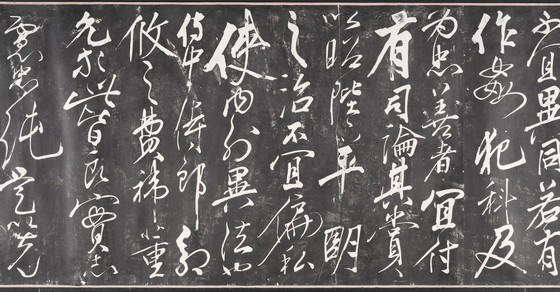 不宜異同若有
作姦犯科及
為忠善者宜付
有司論其賞
以昭陛下平明
之治不宜偏私
使內外異法也
侍中侍郎郭
攸之費禕董
允等此皆良實志
慮忠純是以先